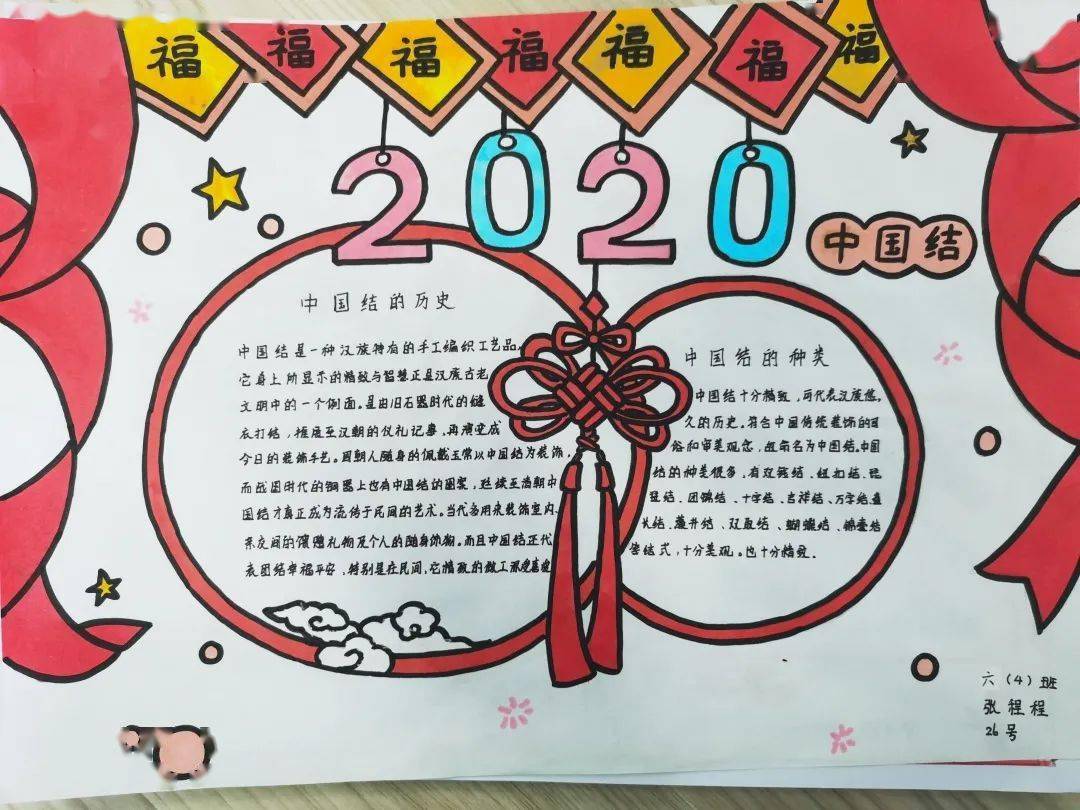 福 福 福 福 福 福 福
2020
中国结
中国结的历史
中国结是一种汉族特有的手工编织工艺品,
它身上所显示的情致与智慧正是汉族古老
文明中的一个侧面。是由旧石器时代的缝
衣打结，推展至汉朝的仪礼记事，再演变成
今日的装饰手艺。周朝人随身的佩戴玉常以中国结为装饰，
而战国时代的铜器上也有中国结的图案，延续至清朝中
国结才真正成为流传于民间的艺术。当代多用来装饰室内、
亲友间的馈赠礼物及个人的随身饰物。而且中国结正代
表团结幸福平安，特别是在民间，它精致的做工深受喜爱
中国结的种类
中国结十分精致，可代表汉族悠
久的历史。符合中国传统装饰的习
俗和审美观念，故命名为中国结。中国
结的种类很多，有双钱结、纽扣结、琵
琶结、团锦结、十字结、吉祥结、万字结、盘
长结、藻井结、双联结、蝴蝶结、锦囊结
等结式，十分美观。也十分精致。
六（4）班
张程程
26号